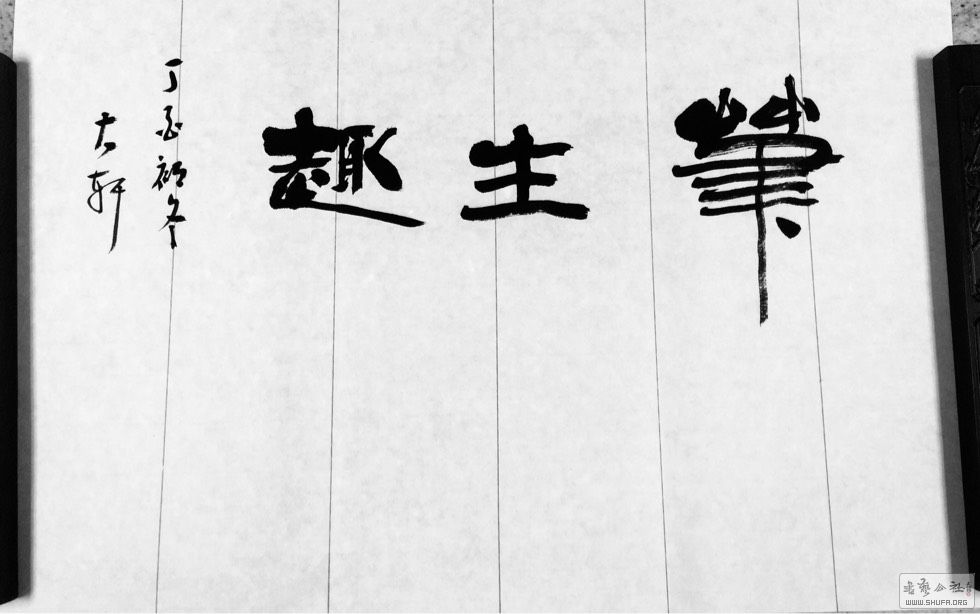 筆生趣
丁酉初冬
轩
書藝公社
WWW.SHUFA.ORG